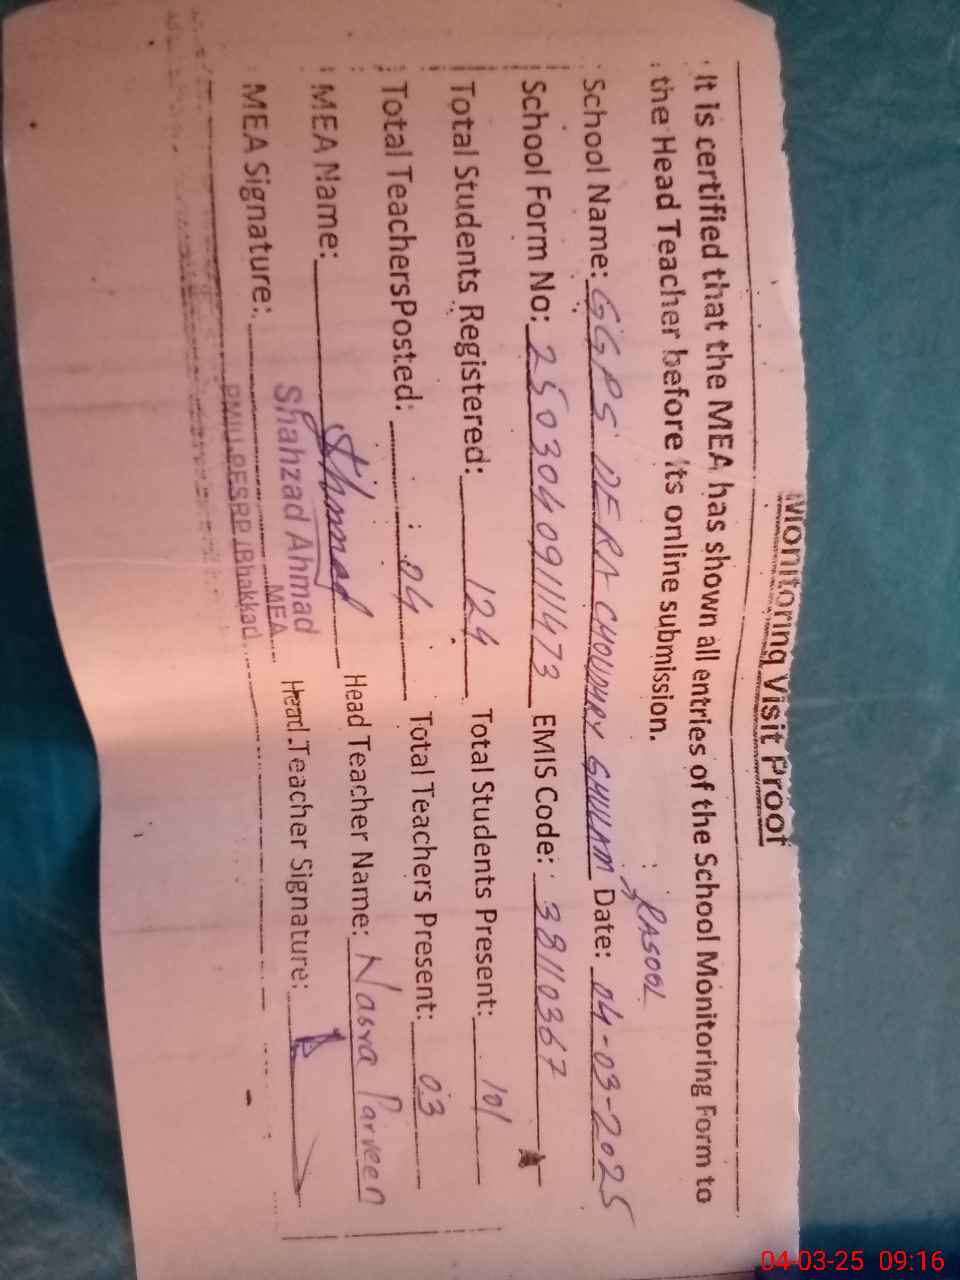 Monitoring Visit Proof
It is certified that the MEA has shown all entries of the School Monitoring Form to
the Head Teacher before its online submission.
School Name: GGPS DERA CHOUDHRY GHULAM RASOOL Date: 04-03-2025
School Form No: 25030409111473 EMIS Code: 38110367
Total Students Registered: 124 Total Students Present: 101
Total TeachersPosted: 04 Total Teachers Present: 03
MEA Name: Ahmad Head Teacher Name: Nasra Parveen
MEA Signature: Head Teacher Signature:
Shahzad Ahmad
MEA
(Bhakkar)
04-03-25 09:16